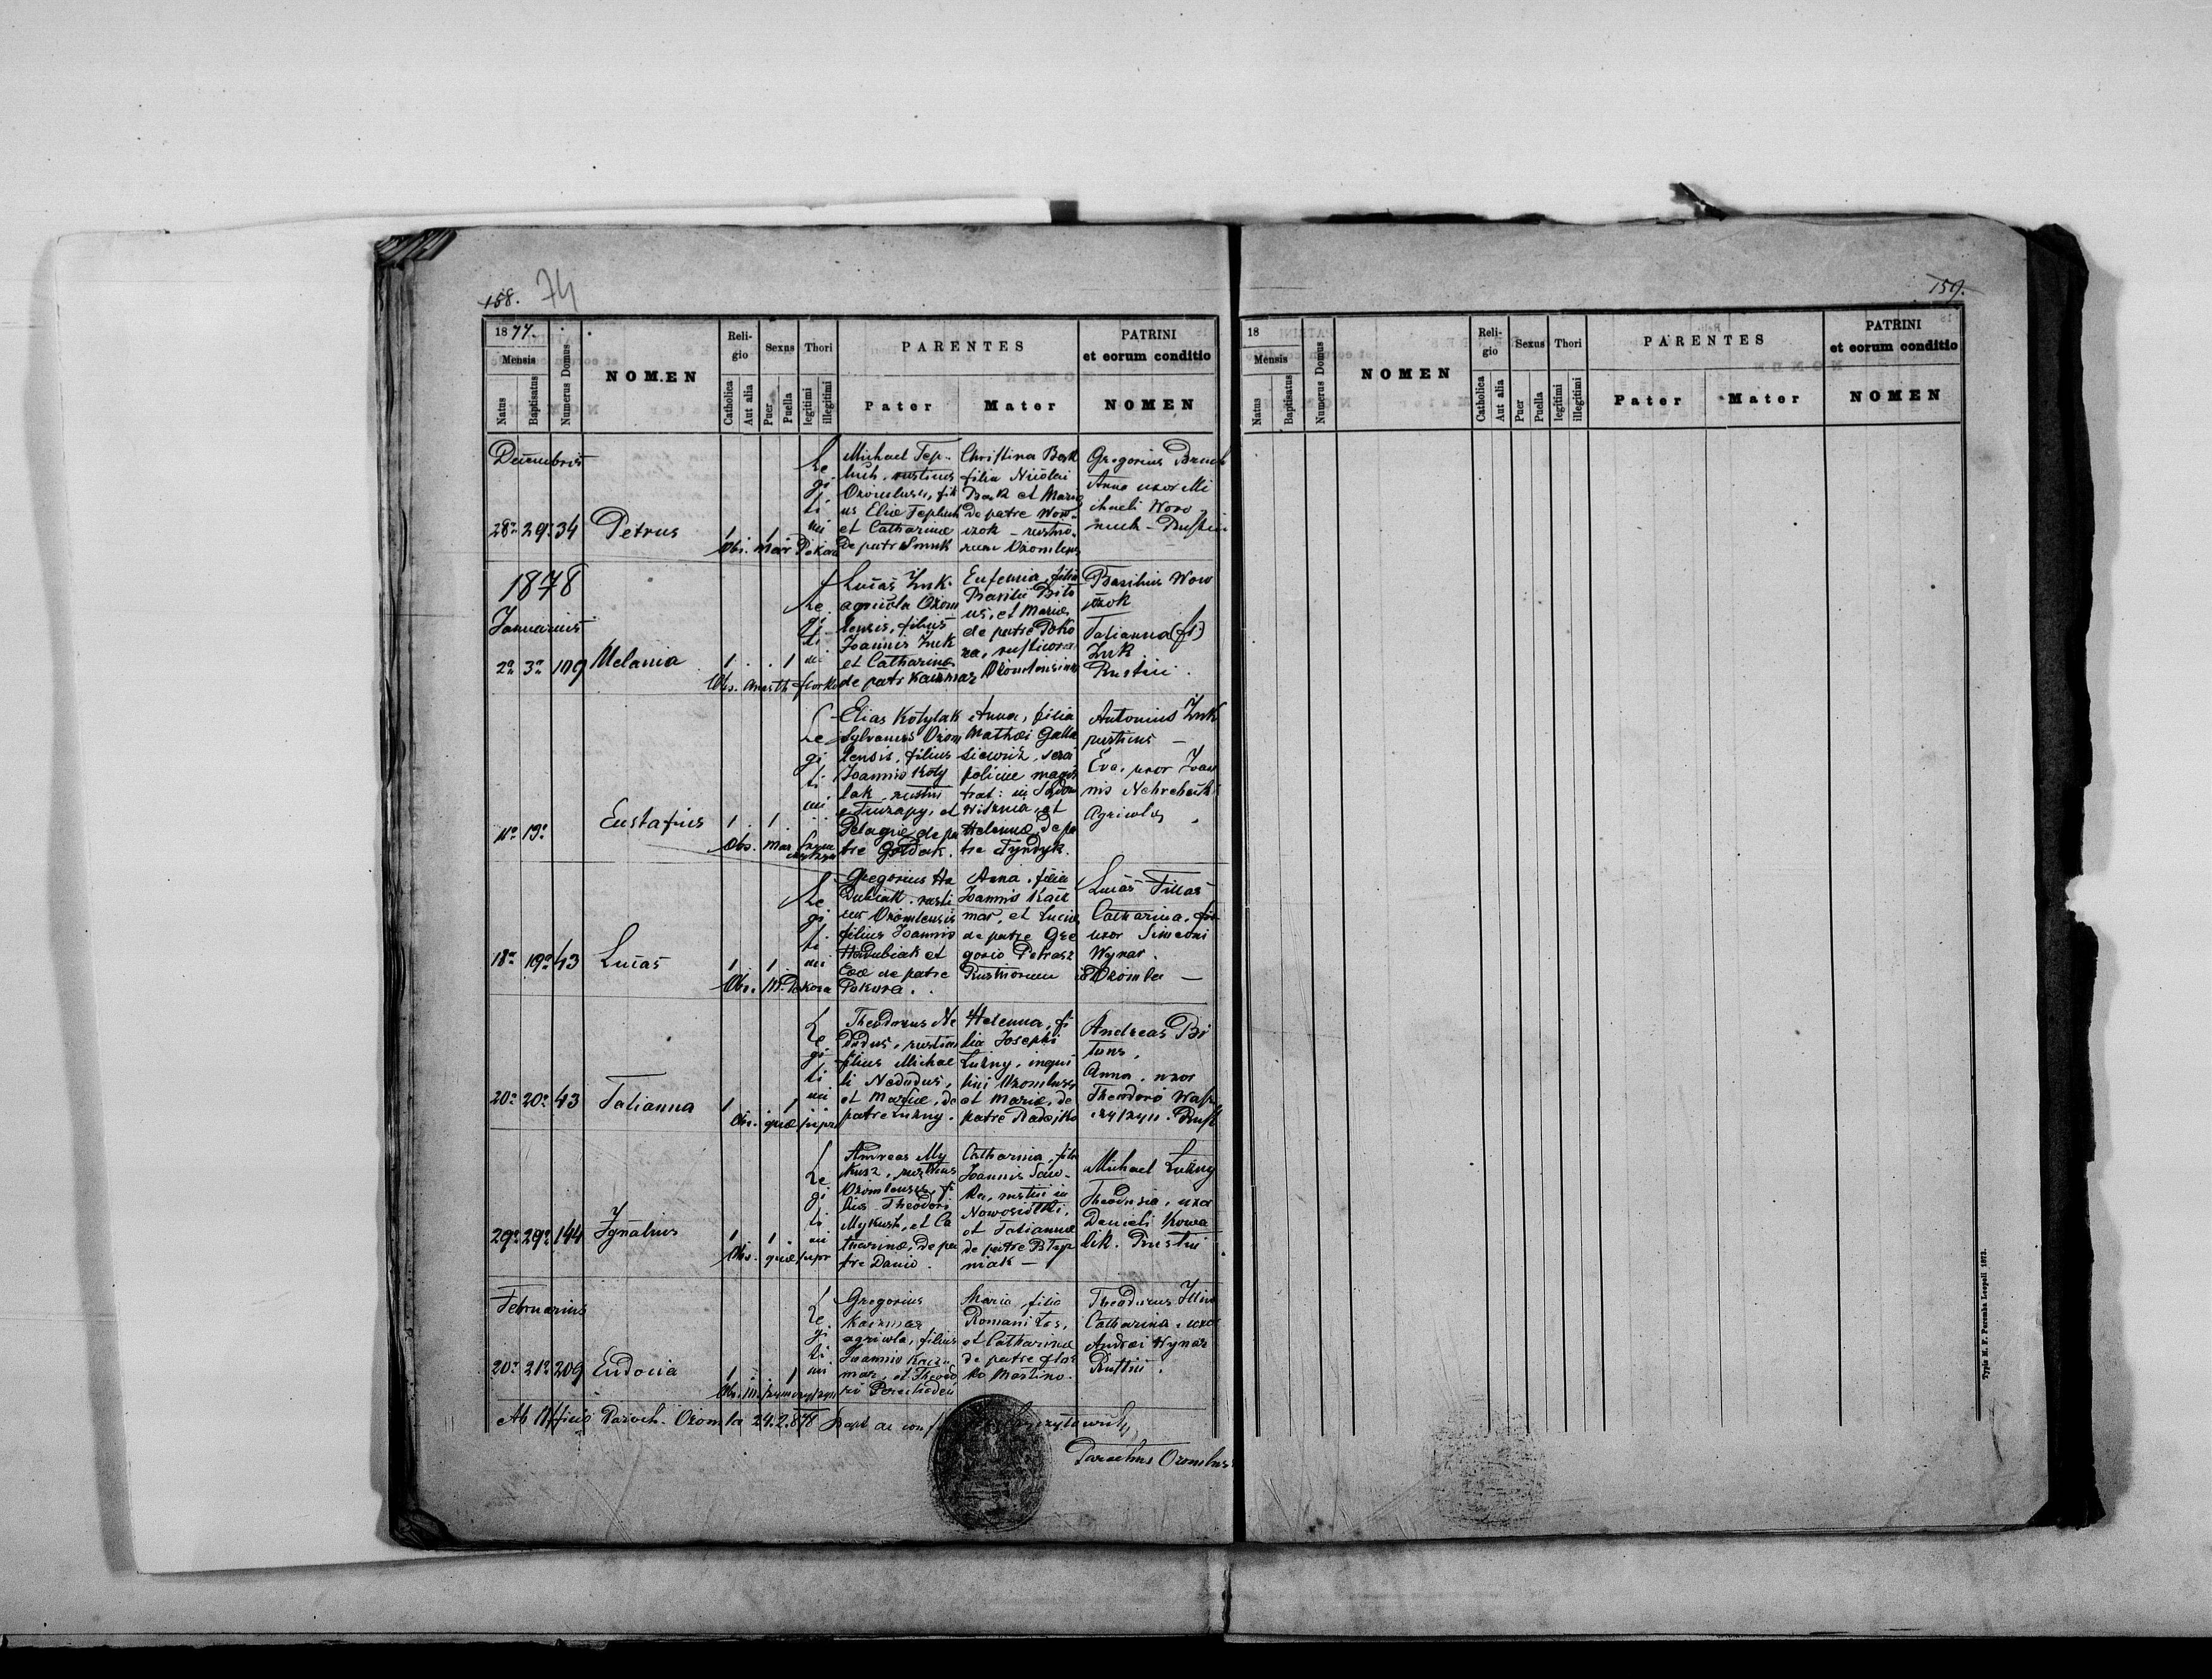 158. 74
1877.
Mensis
Natus
Baptisatus
Numerus Domus
NOMEN
Religio
Catholica
Aut alia
Sexus
Puer
Puella
Thori
legitimi
illegitimi
PARENTES
Pater
Mater
PATRINI
et eorum conditio
NOMEN
Decembris
28a 29a 34 Petrus 1 1
Legitimi
Obs. Mar Pokora
Michael Tep-
luch, rusticus
Ozomlensis, fili
us Eliæ Tepluch
et Catharinæ
de patre Smuk
Christina Bark
filia Nicolai
Bark et Mariæ
de patre Wow-
czok - rustico-
rum Ozomlens
Gregorius
Anna uxor Mi
chaeli Woro-
nuch - Rustici
1878
Januarius
2a 3a 109 Melania 1 . . 1
Legitimi
Obs. Anasth
Lucas Żuk
agricola Ozom
lensis, filius
Joannis Żuk
et Catharinæ
de patr Kaczmar
Eufemia, filia
Basilii Bito
us, et Mariæ
de patre Poko
ra, rusticora
Ozomlensium
Basilius Wow
czok
Tatianna (fa)
Żuk
Rustici.
11a 13a Eustafius 1 . 1
Legitimi
Obs. Mar
Elias Kotylak
Sylvanus Ozom
lensis, filius
Joannis Koty
lak, rustici
e Trurapy, et
Pelagiæ de pa
tre Gołdak.
Anna, filia
Mathæi Galla
siewicz,
policiæ magis
trat: in
Wisznia, et
Helennæ, de pa
tre Tyndyk.
Antonius Żuk
rusticus -
Eva, uxor Joan
nis Nehrebecki
Agricolæ
18a 19a 43 Lucas 1 1
Legitimi
Obs. M. Pokora
Gregorius Ha
Dubiak, rusti
cus Ozomlensis
filius Joannis
HaDubiak et
Evæ de patre
Pokora.
Anna, filia
Joannis Kacz
mar, et Luciæ
de patre Gre
gorio Petrasz
Rusticorum
Lucas Tillas
Catharina,
uxor Simeoni
Wynar.
Ozomla -
20a 20a 43 Tatianna 1 1
Legitimi
Obs. quæ supra
Theodorus Ne
dodus, rusticus
filius Michae
li Nedodus,
et Mariæ, de
patre Lukny.
Helenna, fi
lia Josephi
Lukny, inqui
lini Ozomlensis
et Mariæ, de
patre Radejko
Andreas Bi
tous,
Anna, uxor
Theodoro Wasz
czyszyn. Rust
29a 29a 144 Ignatius 1 1
Legitimi
Obs. quæ supr
Andreas My
kusz, rusticus
Ozomlensis, fi
lius Theodori
Mykusz, et Ca
tharinæ, de pa
tre Danio.
Catharina, filia
Joannis Saw-
ka, rustici in
Nowosiółki,
et Tatiannæ
de patre
niak -
Michael Lukny
Theodosia, uxor
Danieli Kowa
lik. Rustici
Februarius
20a 21a 209 Eudocia 1 1
Legitimi
Obs. M.
Gregorius
Kaczmar
agricola, filius
Joannis Kacz-
mar, et Theodo
Maria, filia
Romani Los,
et Catharinæ
de patre
ko Martino.
Theodorus
Catharina, uxor
Andræi Wynar
Rustici.
Ab Officio Paroch. Ozomla 24.2.878
Parochus Ozomlens
159.
18
Mensis
Natus
Baptisatus
Numerus Domus
NOMEN
Religio
Catholica
Aut alia
Sexus
Puer
Puella
Thori
legitimi
illegitimi
PARENTES
Pater
Mater
PATRINI
et eorum conditio
NOMEN
Typis M. F. Poremba Leopoli 1872.